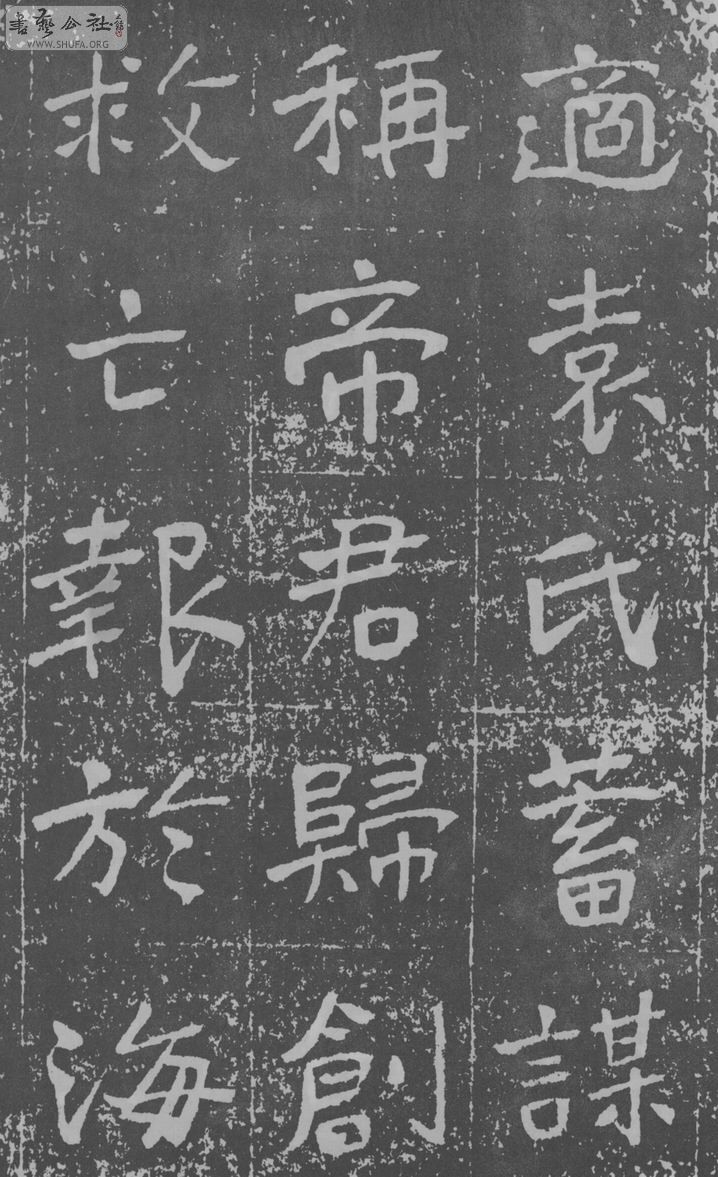 適袁氏蓄謀
稱帝君歸創
救亡報於海
書藝公社
WWW.SHUFA.ORG